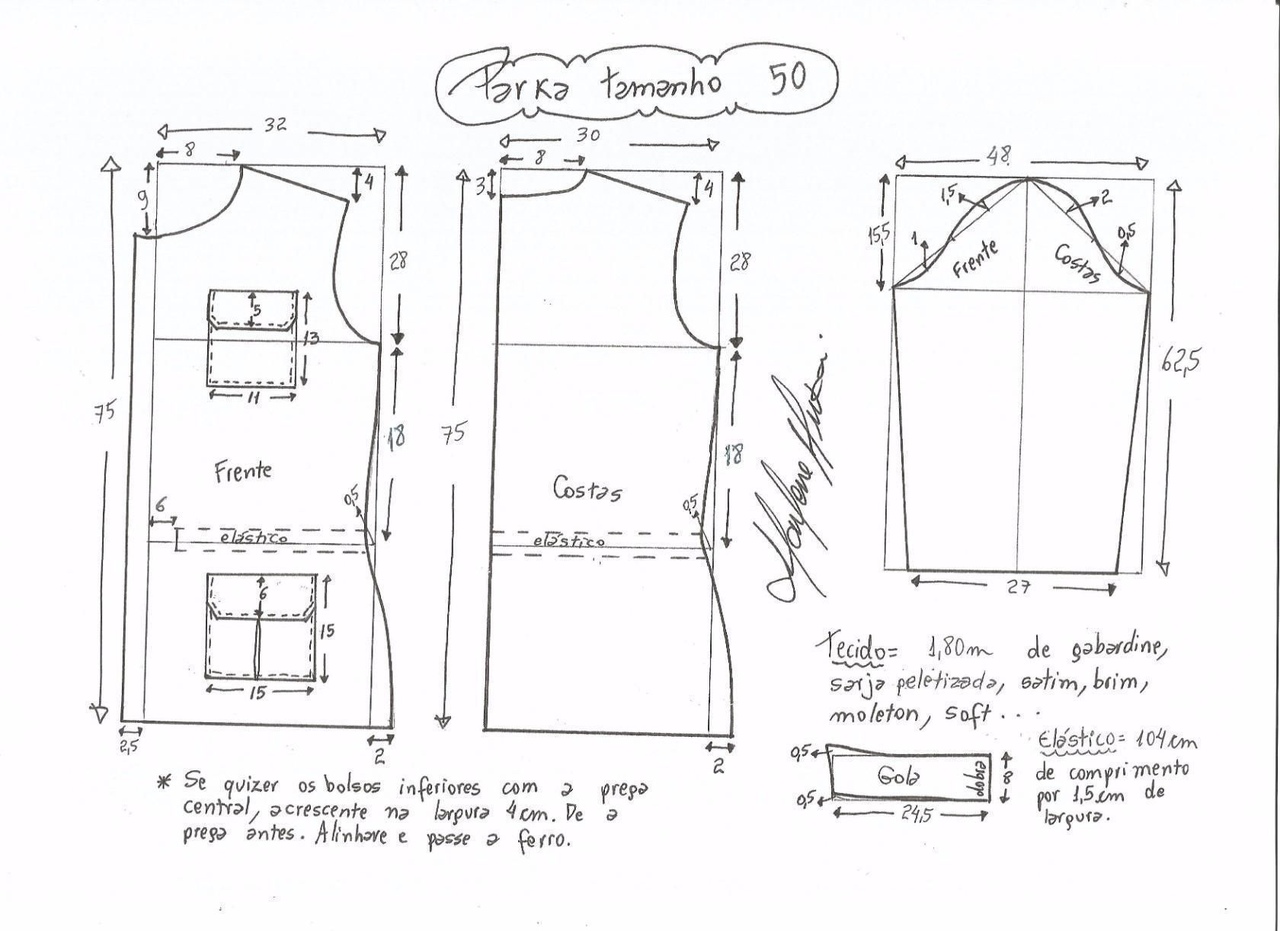 Parka tamanho 50
32
8
9
4
28
5
13
11
75
18
Frente
0,5
6
elástico
6
15
15
2,5
2
30
8
3
4
28
75
18
Costas
0,5
elástico
2
48
15,5
1,5
2
1
0,5
Frente
Costas
62,5
27
Tecido= 1,80m de gabardine,
sarja peletizada, satim, brim,
moleton, soft...
0,5
Gola
dobra
8
0,5
24,5
Elástico= 104cm
de comprimento
por 1,5cm de
largura.
* Se quizer os bolsos inferiores com a prega
central, acrescente na largura 4cm. De a
prega antes. Alinhave e passe a ferro.